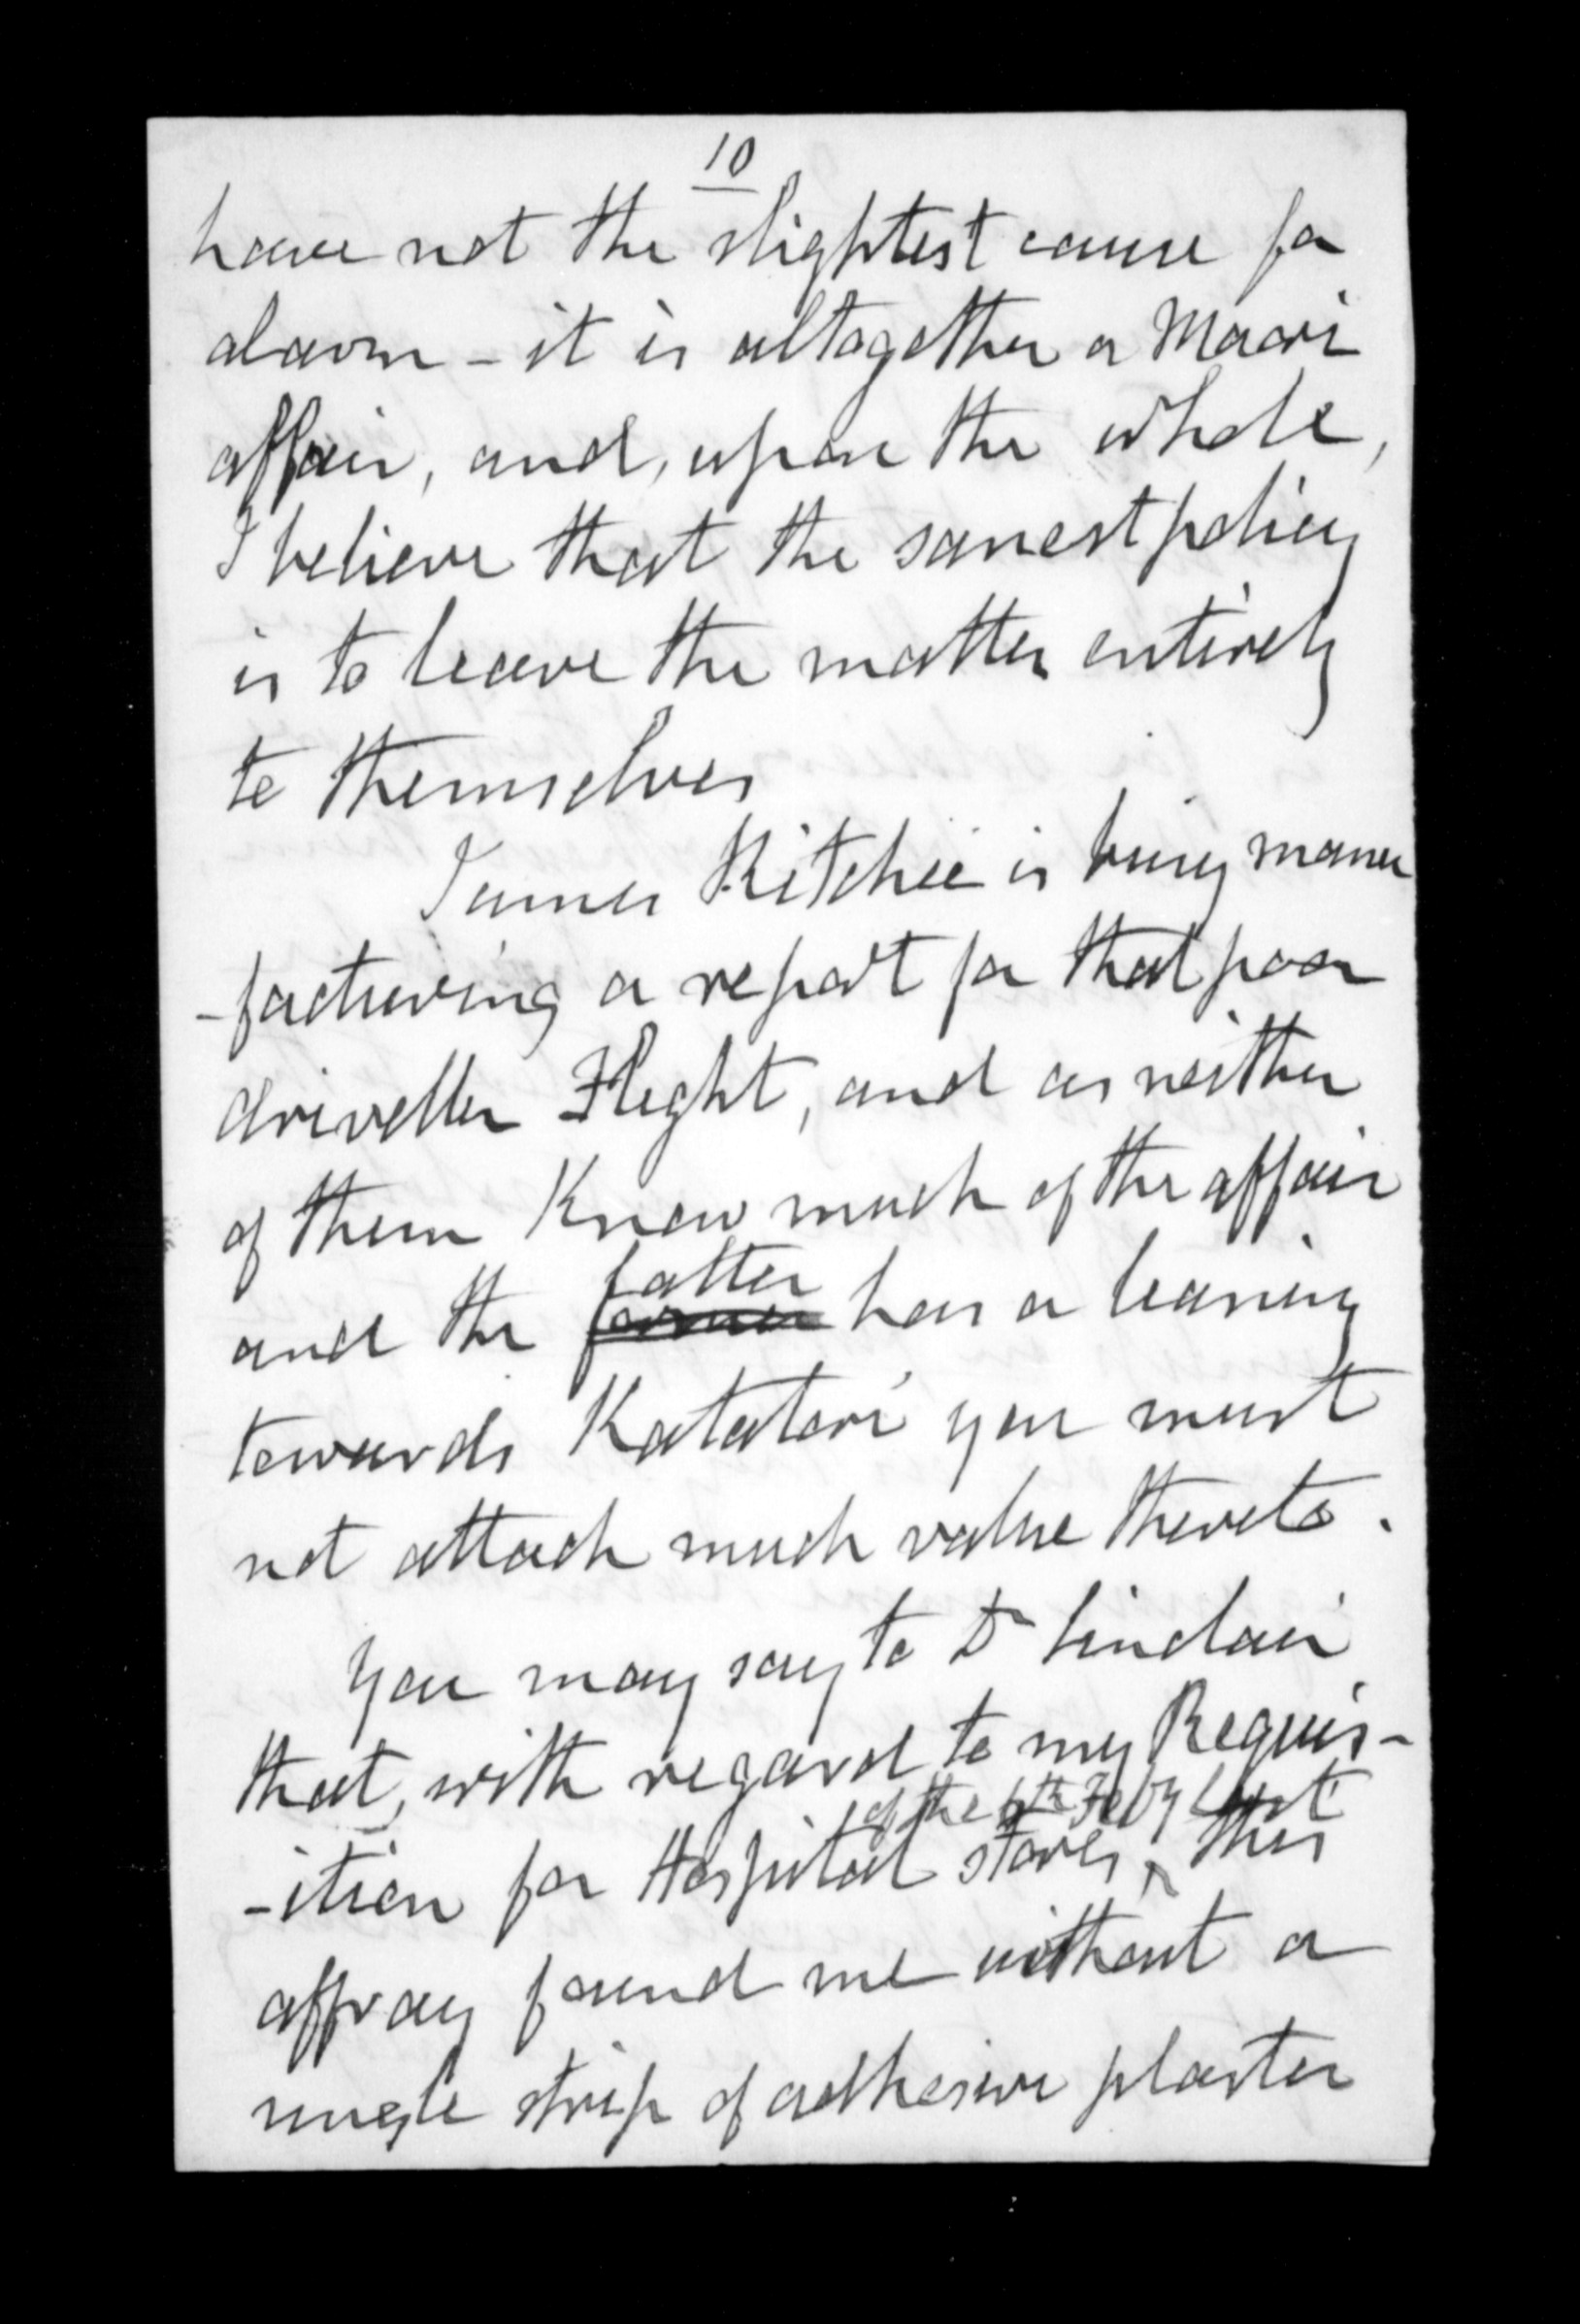 10
have not the slightest cause for
alarm - it is altogether a Maori
affair, and, upon the whole,
I believe that the sanest policy
is to leave the matter entirely
to themselves
James Ritchie is busy manu
-facturing a report for that poor
driveller Flight, and as neither
of them know much of the affair
latter
and the former has a leaning
towards Katatori you must
not attach much value thereto.
You may say to Dr Sinclair
that, with regard to my Requis-
of the 6th Feby last
-ition for Hospital stores, this
affray found me without a
single strip of adhesive plaster